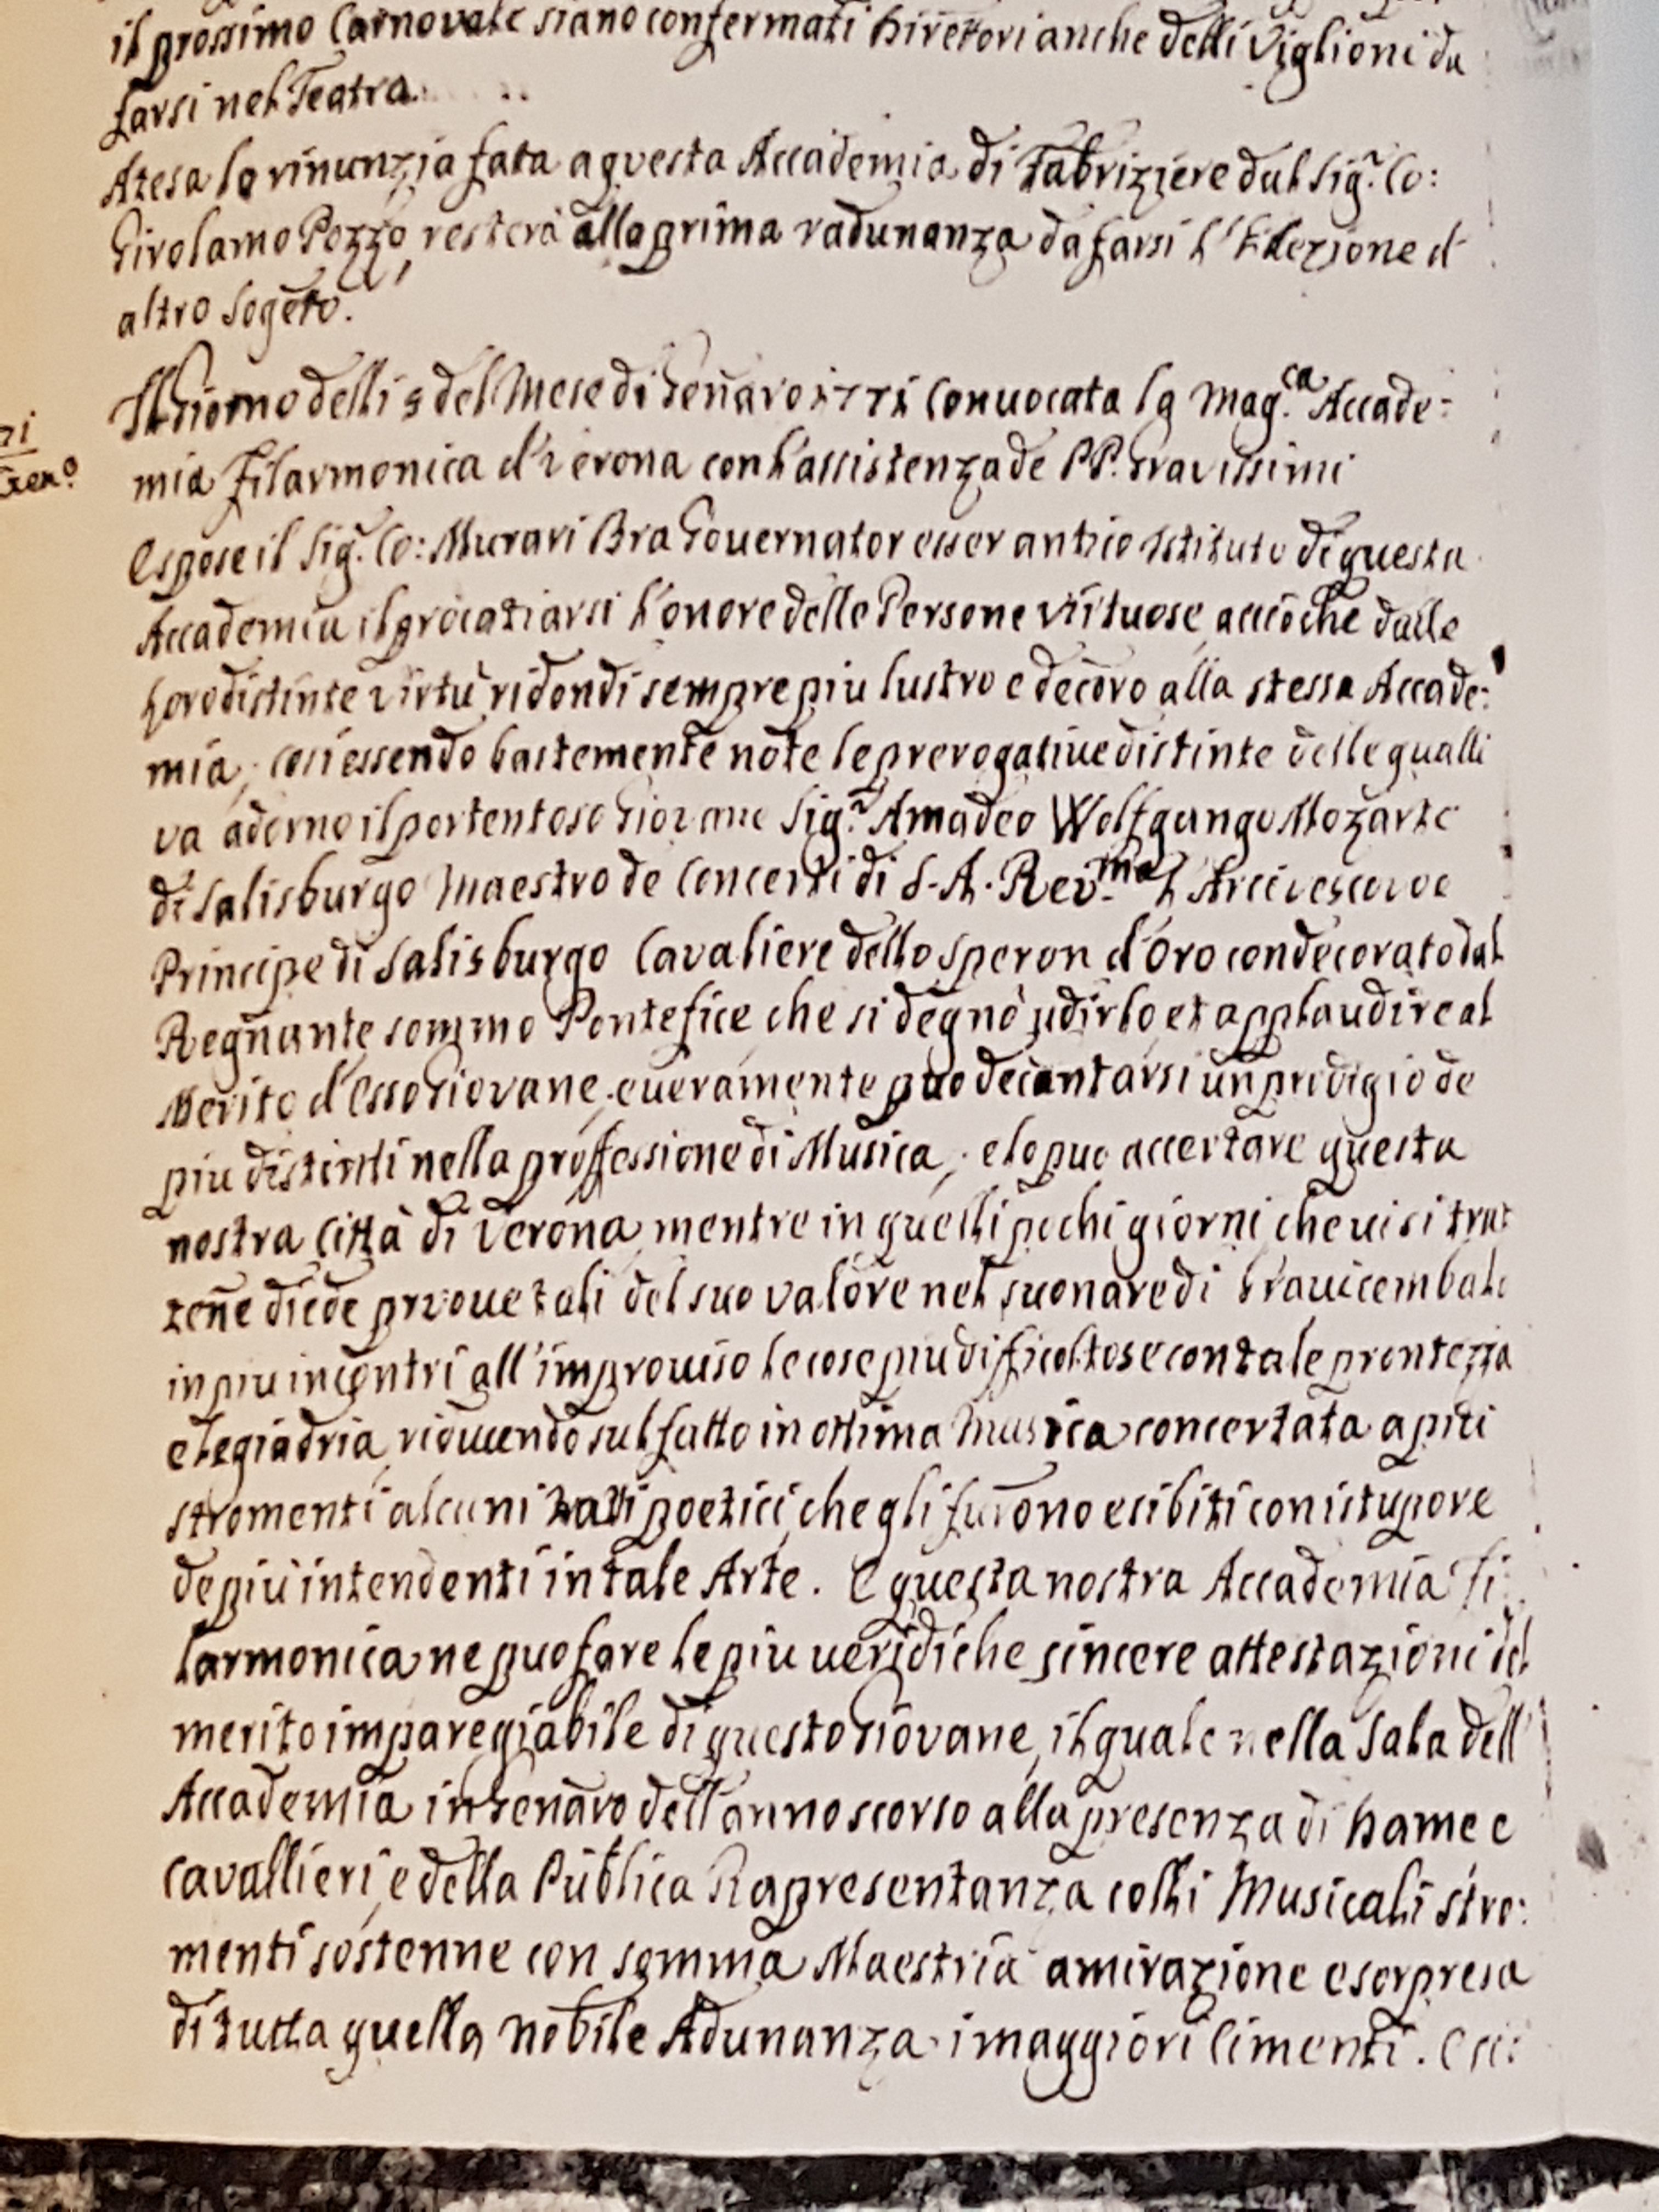 il prossimo Carnovale siano confermati Diretori anche delli Viglioni da
farsi nel Teatro.
Atesa la rinunzia fata a questa Accademia di Fabriziere dal Sig.r Co:
Girolamo Pozzo, resterà alla prima radunanza da farsi l'Elezione d'
altro Sogeto.
Il Giorno delli 5 del Mese di Genaro 1771 Conuocata la Mag.ca Accade:
mia Filarmonica d'Verona con l'assistenza de PP. Gravissimi
Espose il Sig.r Co: Murari Bra Gouernator esser antico Istituto di questa
Accademia il procatiarsi l'onore delle Persone Virtuose, acciòche dalle
loro distinte virtù ridondi sempre piu lustro e decoro alla stessa Accade:
mia; cosi essendo bastemente note le prerogatiue distinte delle qualli
va adorno il portentoso Giovane Sig.r Amadeo Wolfgango Mozarte
di Salisburgo Maestro de Concerti di S. A. Rev.ma l'Arcivescovo e
Principe di Salisburgo Cavaliere dello Speron d'Oro condecorato dal
Regnante sommo Pontefice, che si degnò udirlo, et applaudire al
Merito d'esso Giovane, e ueramente può decantarsi un prodigio de
piu distinti nella professione di Musica; e lo può accertare questa
nostra Città di Verona, mentre in quelli pochi giorni, che ui si trat
tene diede prouue tali del suo valore nel suonare di Grauicembalo
in piu incontri all'improuiso le cose piu dificoltose con tale prontezza
e legiadria, riducendo sul fatto in ottima Musica concertata a più
stromenti alcuni poetici, che gli furono esibiti con istupore
de più intendenti in tale Arte. E questa nostra Accademia Fi
larmonica ne può fare le piu ueridiche sincere attestazioni del
merito impareggiabile di questo Giovane, il quale nella Sala dell'
Accademia in Genaro dell'anno scorso alla presenza di Dame e
Cavallieri, e della Publica Rapresentanza colli Musicali stro:
menti sostenne con somma Maestria amirazione e sorpresa
di tutta quella Nobile Adunanza i maggiori Cimenti.